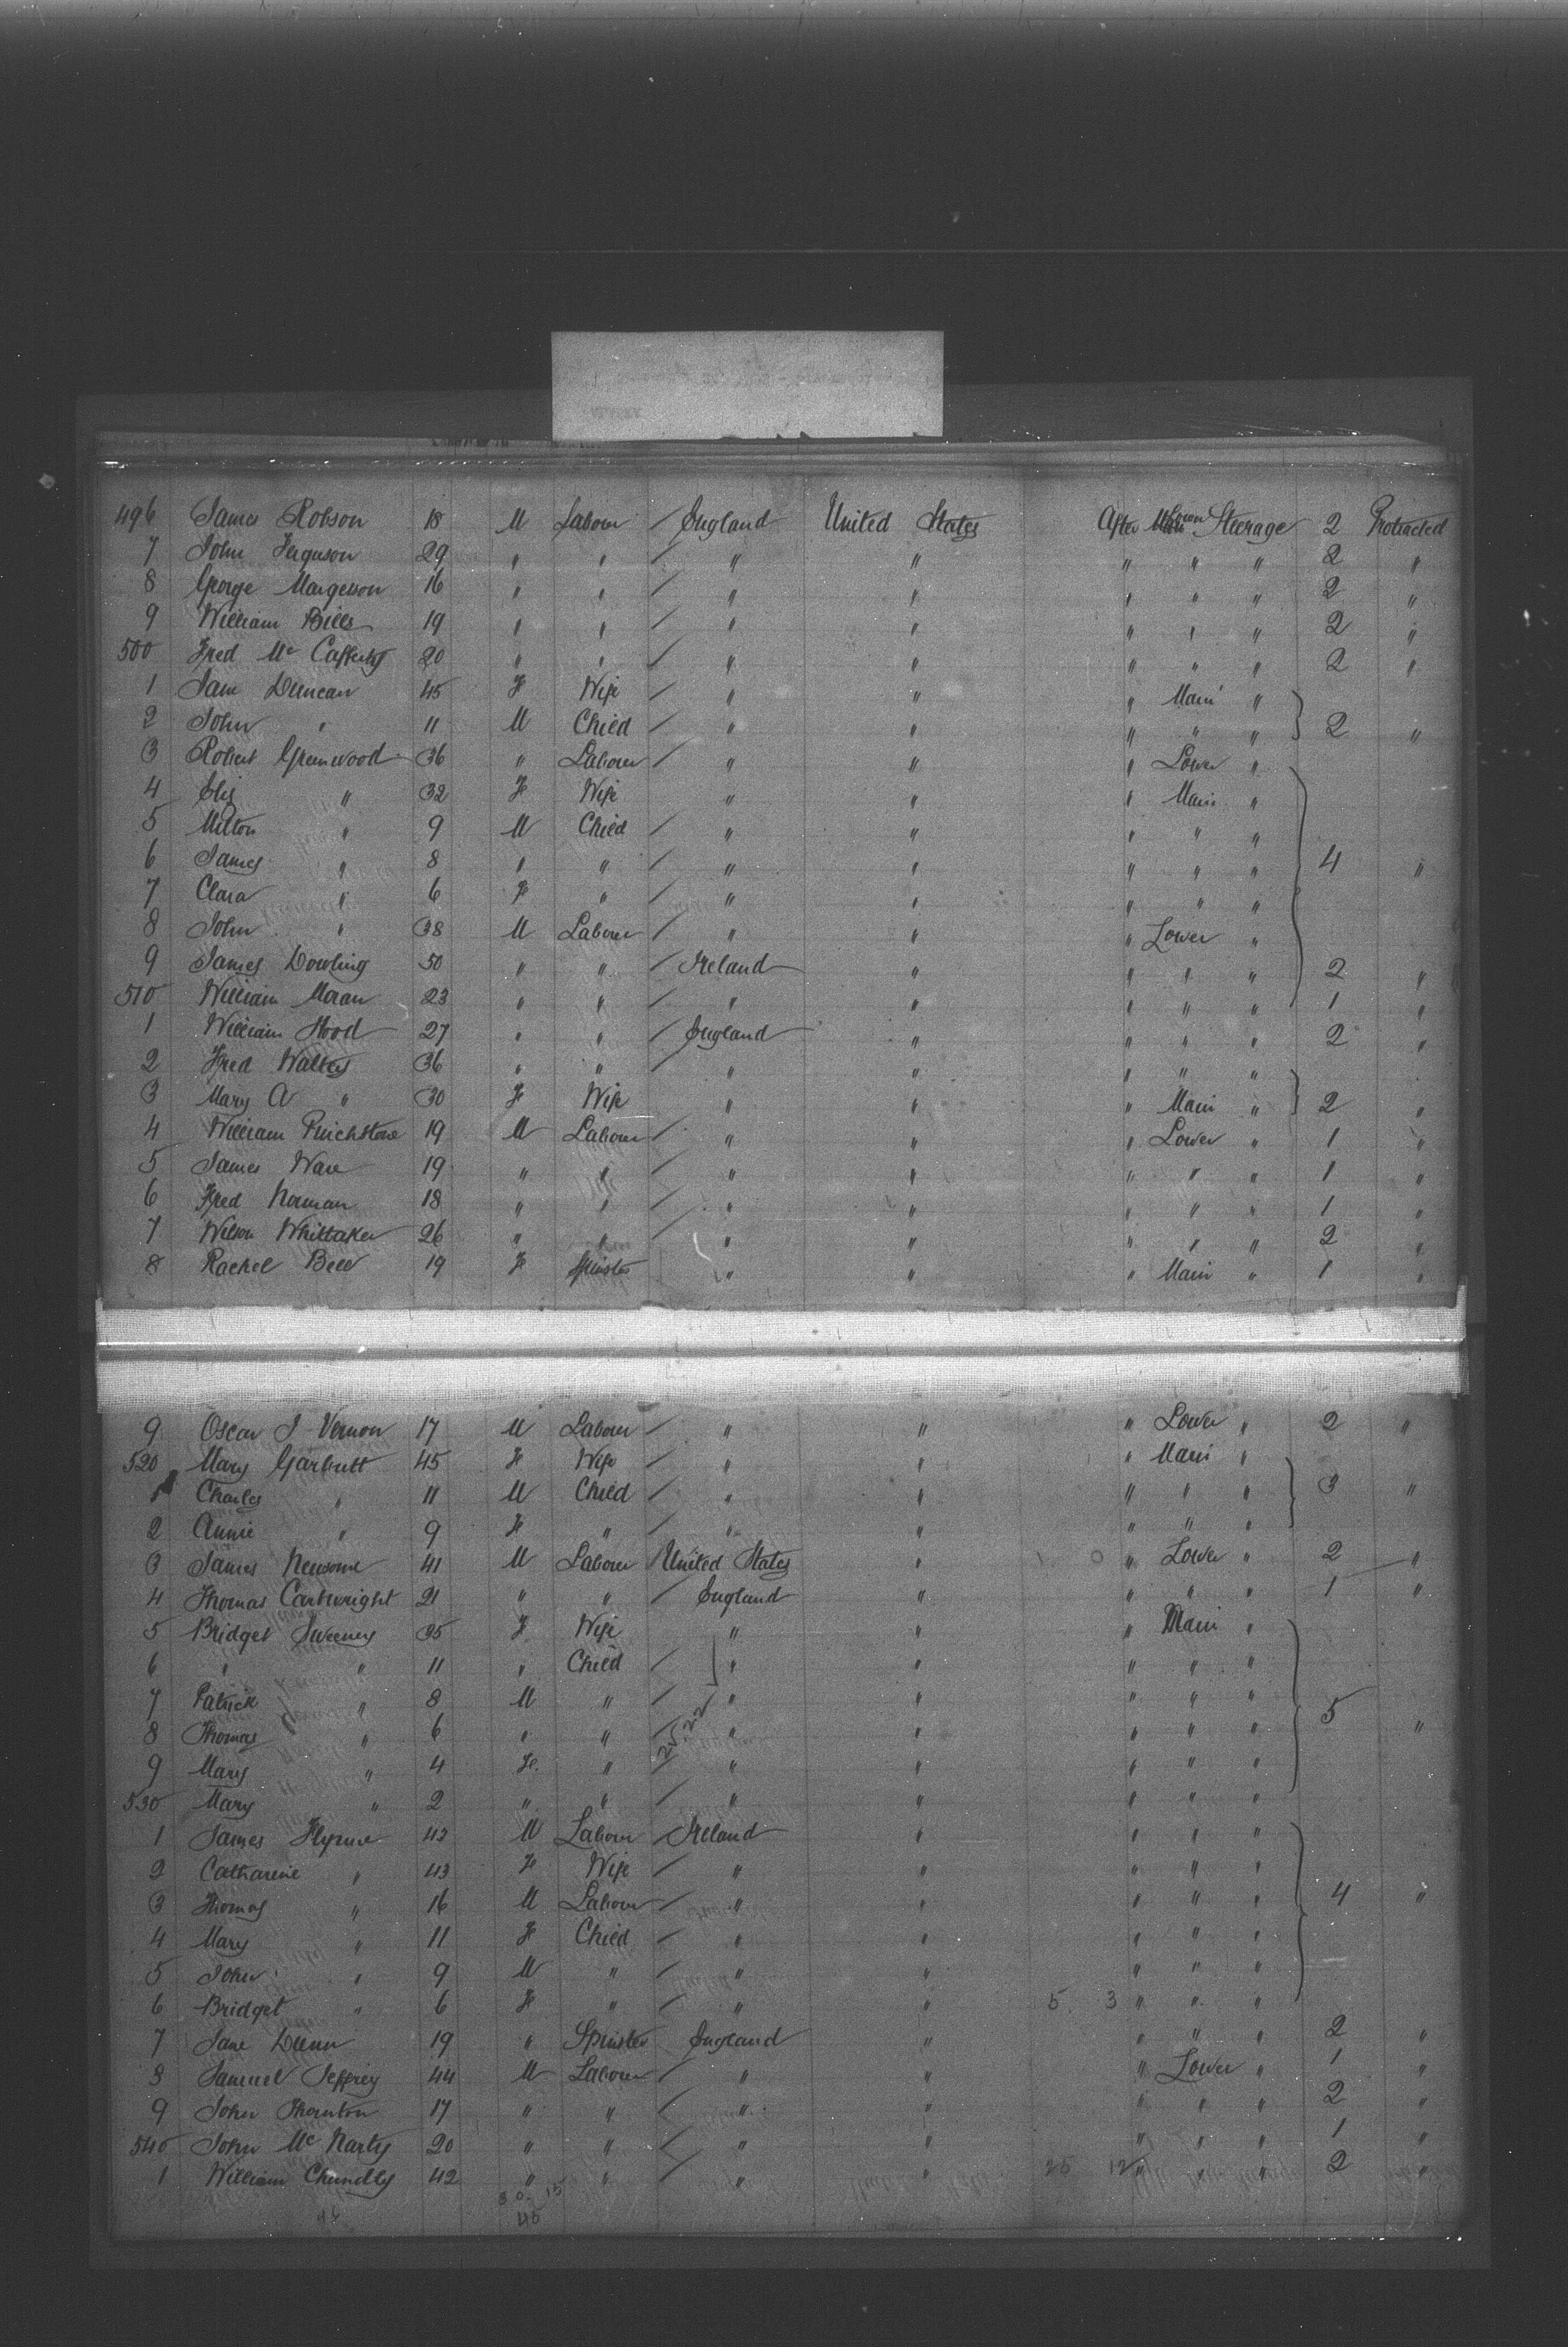 496 James Robson 18 M Labour / England United States After Lower Steerage 2 Protracted
7 John Ferguson 29 " " / " " " " " 2 "
8 George Margesson 16 " " / " " " " " 2 "
9 William Bills 19 " " / " " " " " 2 "
500 Fred Mc Cafferty 20 " " / " " " " " 2 "
1 Jane Duncan 45 F Wife / " " " Main "
2 John " 11 M Child / " " " " " 2 "
3 Robert Greenwood 36 " Labour / " " " Lower "
4 Eliz " 32 F Wife " " " Main "
5 Milton " 9 M Child / " " " " "
6 James " 8 " " / " " " " " 4 "
7 Clara " 6 F " / " " " " "
8 John " 38 M Labour / " " " Lower "
9 James Dowling 50 " " / Ireland " " " " 2 "
510 William Moran 23 " " / " " " " " 1 "
1 William Hood 27 " " / England " " " " 2 "
2 Fred Walters 36 " " / " " " " "
3 Mary A " 30 F Wife " " " Main " 2 "
4 William 19 M Labour / " " " Lower " 1 "
5 James Ware 19 " " / " " " " " 1 "
6 Fred Norman 18 " " / " " " " " 1 "
7 Wilson Whittaker 26 " " / " " " " " 2 "
8 Rachel Bell 19 F Spinster " " " Main " 1 "
9 Oscar J Vernon 17 M Labour / " " " Lower " 2 "
520 Mary Garbutt 45 F Wife / " " " Main "
1 Charles " 11 M Child / " " " " " 3 "
2 Annie " 9 F " / " " " " "
3 James Newsome 41 M Labour / United States " 0 " Lower " 2 "
4 Thomas Cartwright 21 " " / England " " " " 1 "
5 Bridget Sweeney 35 F Wife " " " Main "
6 " " 11 " Child / " " " " "
7 Patrick " 8 M " / " " " " " 5 "
8 Thomas " 6 " " / " " " " "
9 Mary " 4 F " " " " " "
530 Mary " 2 " " / " " " " "
1 James Flynn 42 M Labour / Ireland " " " "
2 Catharine " 43 F Wife / " " " " "
3 Thomas " 16 M Labour / " " " " " 4 "
4 Mary " 11 F Child / " " " " "
5 John " 9 M " / " " " " "
6 Bridget " 6 F " / " " 5 3 " " "
7 Jane Dunn 19 " Spinster England " " " " 2 "
8 Samuel Jeffrey 44 M Labour / " " " Lower " 1 "
9 John Thornton 17 " " / " " " " " 2 "
540 John Mc Narty 20 " " / " " " " " 1 "
1 William 42 " " / " " 25 12 " " " 2 "
30 15
45